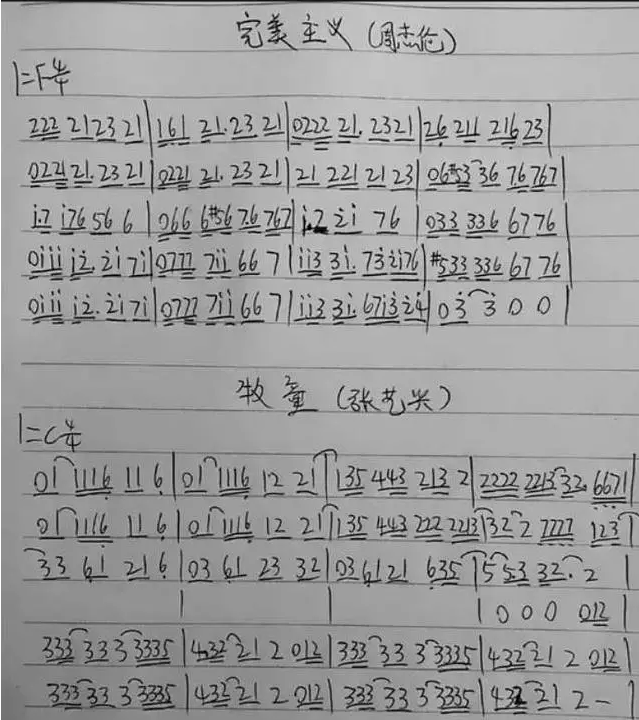 完美主义(周杰伦)
1=F 4/4
222 21 23 21|161 21.23 21|0222 21. 2321|26 211 216 23|
0221 21.23 21|0221 21.23 21|21 221 21 23|06#53 36 76 767|
i.7 i76 56 6|066 6#56 76 767|i.2 2i 76|033 336 67 76|
0iii i2.2i7i|0777 7ii 66 7|ii3 3i.732i76|#533 336 67 76|
0iii i2.2i7i|0777 7ii 66 7|ii3 3i.67i324|03 3 0 0|
牧童(张艺兴)
1=C 4/4
01 1116 11 6|01 1116 12 21|135 443 213 2|2222 2213 32. 6671|
01 1116 11 6|01 1116 12 21|135 443 222 2213|32 2 7777 123|
33 61 21 6|03 61 23 32|03 61 21 635|5 53 32. 2|
| | |0 0 0 012|
333 33 3 3335|432 21 2 012|333 33 3 3335|432 21 2 012|
333 33 3 3335|432 21 2 012|333 33 3 3335|432 21 2 -|